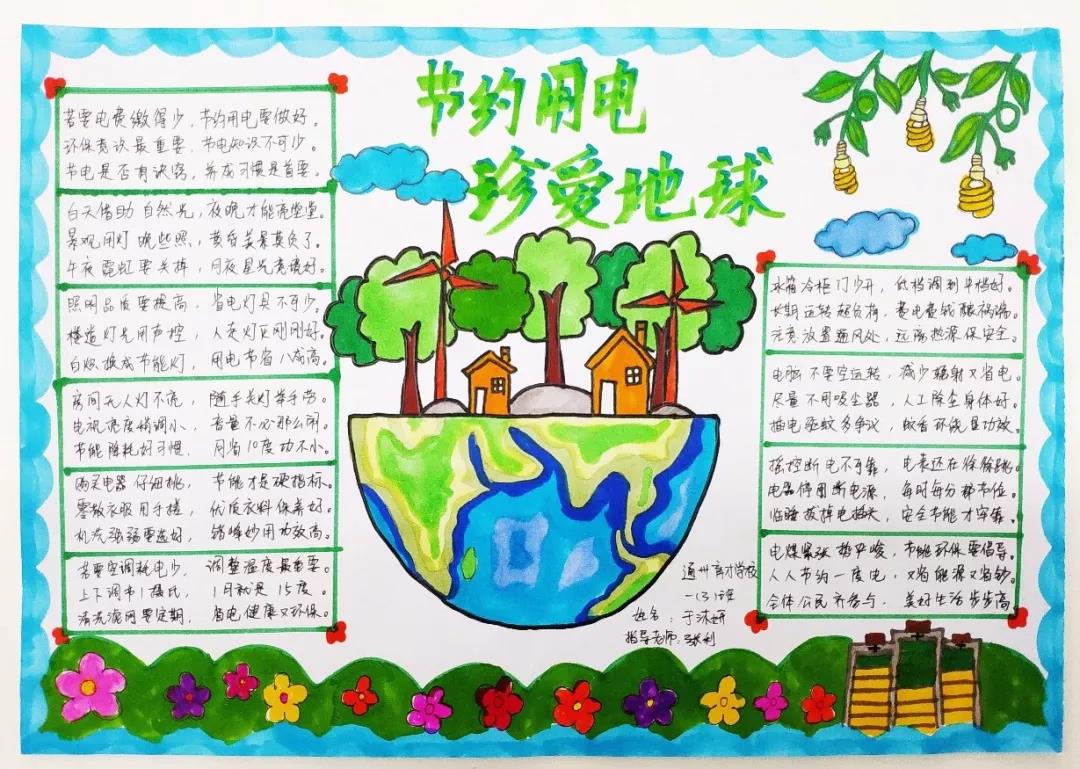 节约用电
珍爱地球
若要电费缴得少，节约用电要做好。
环保意识最重要，节电知识不可少。
节电是否有诀窍，养成习惯是首要。
白天借助自然光，夜晚才能亮堂堂。
景观用灯晚些照，黄昏美景莫负了。
午夜霓虹要关掉，月夜星光亮谱好。
照明品质要提高，省电灯具不可少。
楼道灯光用声控，人走灯灭刚刚好。
白炽换成节能灯，用电节省八成高。
房间无人灯不亮，随手关灯举手劳。
电视亮度稍调小，音量不必那么闹。
节能降耗好习惯，月省10度功不小。
购买电器仔细挑，节能才是硬指标。
零散衣服用手搓，优质衣料保养好。
机洗强弱要选好，错峰妙用功效高。
若要空调耗电少，调整温度最重要。
上下调节1摄氏，1月就是15度。
清洗滤网要定期，省电健康又环保。
冰箱冷柜门少开，低档调到中档好。
长期运转超负荷，费电费钱酿祸端。
完亮放置通风处，远离热源保安全。
电脑不要空运转，减少辐射又省电。
尽量不用吸尘器，人工除尘身体好。
插电驱蚊多争议，蚊香环绕显功效。
遥控断电不可靠，电表还在徐徐跳。
电器停用断电源，每时每分都节位。
临睡拔掉电插头，安全节能才牢靠。
电煤紧张趋平峻，节能环保要倡导。
人人节约一度电，又省能源又省钞。
全体公民齐参与，美好生活步步高
通州育才学校
一（3）班
姓名：于沐妍
指导老师：张利